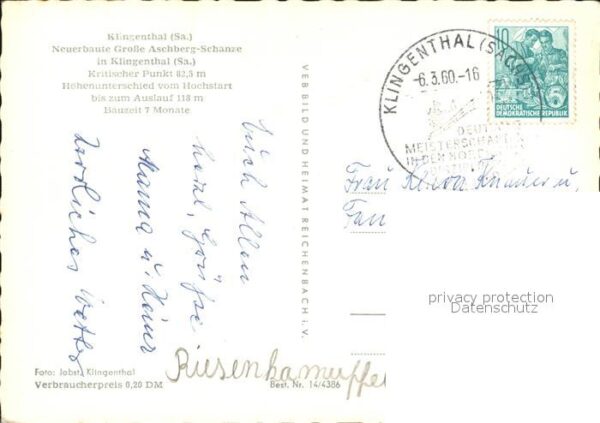 Klingenthal (Sa.)
Neuerbaute Große Aschberg-Schanze
in Klingenthal (Sa.)
Kritischer Punkt 82,5 m
Höhenunterschied vom Hochstart
bis zum Auslauf 118 m
Bauzeit 7 Monate
Euch Allen
herzl. Grüße
Mama u. Heinz
Herrliches Wetter
Riesenkamuffel
Foto: Jobst, Klingenthal
Verbraucherpreis 0,20 DM
Best. Nr. 14/4386
VEB BILD UND HEIMAT REICHENBACH i. V.
KLINGENTHAL (SACHS
-6.3.60.-16
MEISTERSCHAFTEN
IN DEN
10
5
DEUTSCHE
DEMOKRATISCHE REPUBLIK
Frau
u.
Fam
privacy protection
Datenschutz